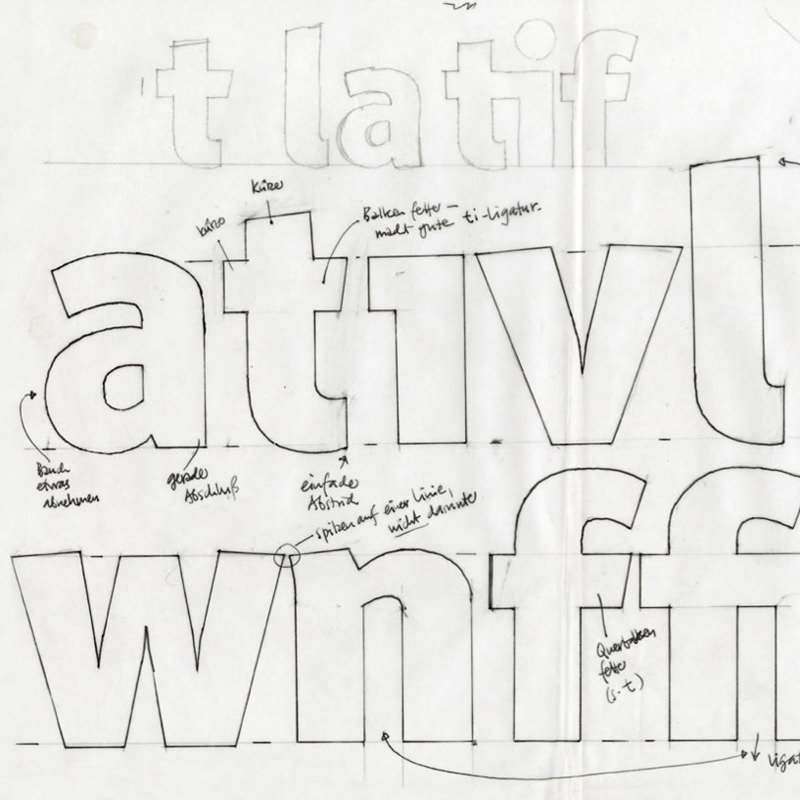 t latif
kürzer
kürzer
Balken fetter –
macht gute ti-ligatur.
atıvl
Bauch
etwas
abnehmen
gerader
Abschluß
einfacher
Abstrich
spitzen auf einer Linie,
nicht darunter
wnff
Querbalken
fetter
(s. t)